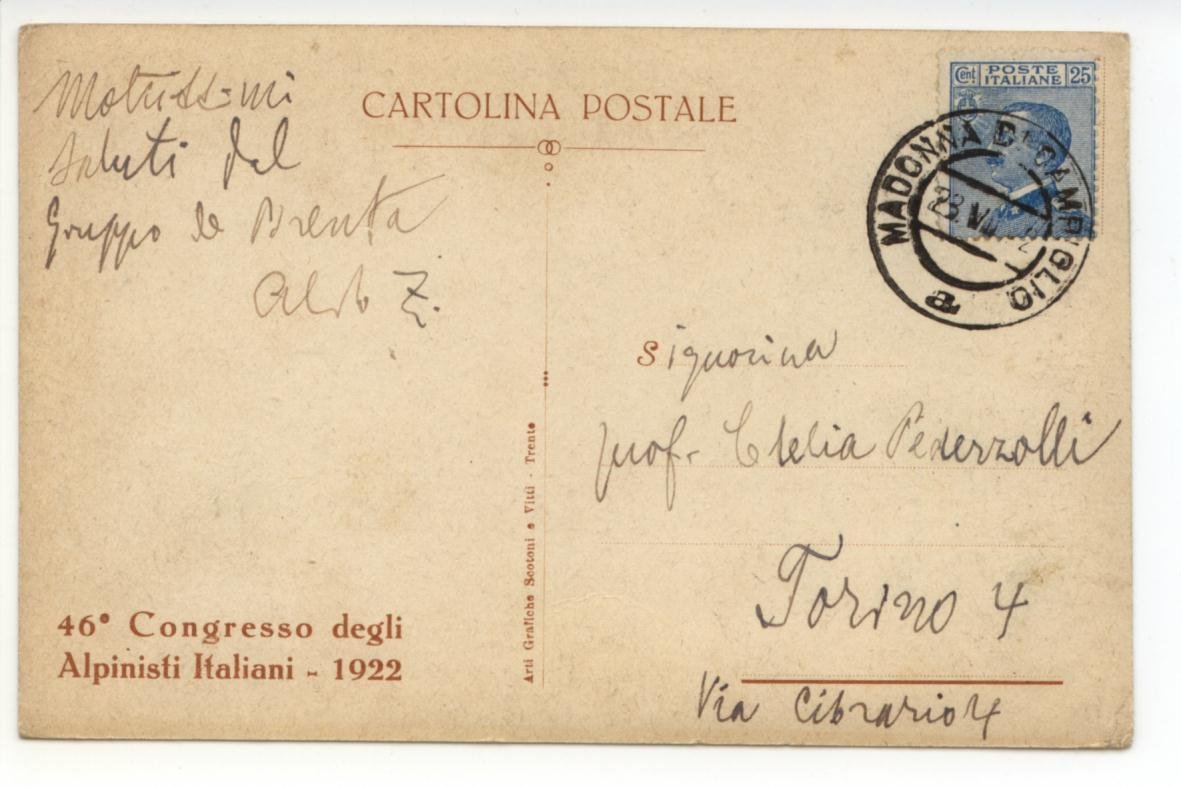 CARTOLINA POSTALE
Saluti dal
Gruppo de Brenta
Aldo Z.
Cent. POSTE ITALIANE 25
MADONNA DI CAMPIGLIO
a
Signorina
prof. Clelia Pederzolli
Torino 4
Via Cibrario 4
Arti Grafiche Scotoni e Vitti - Trento
46° Congresso degli
Alpinisti Italiani - 1922